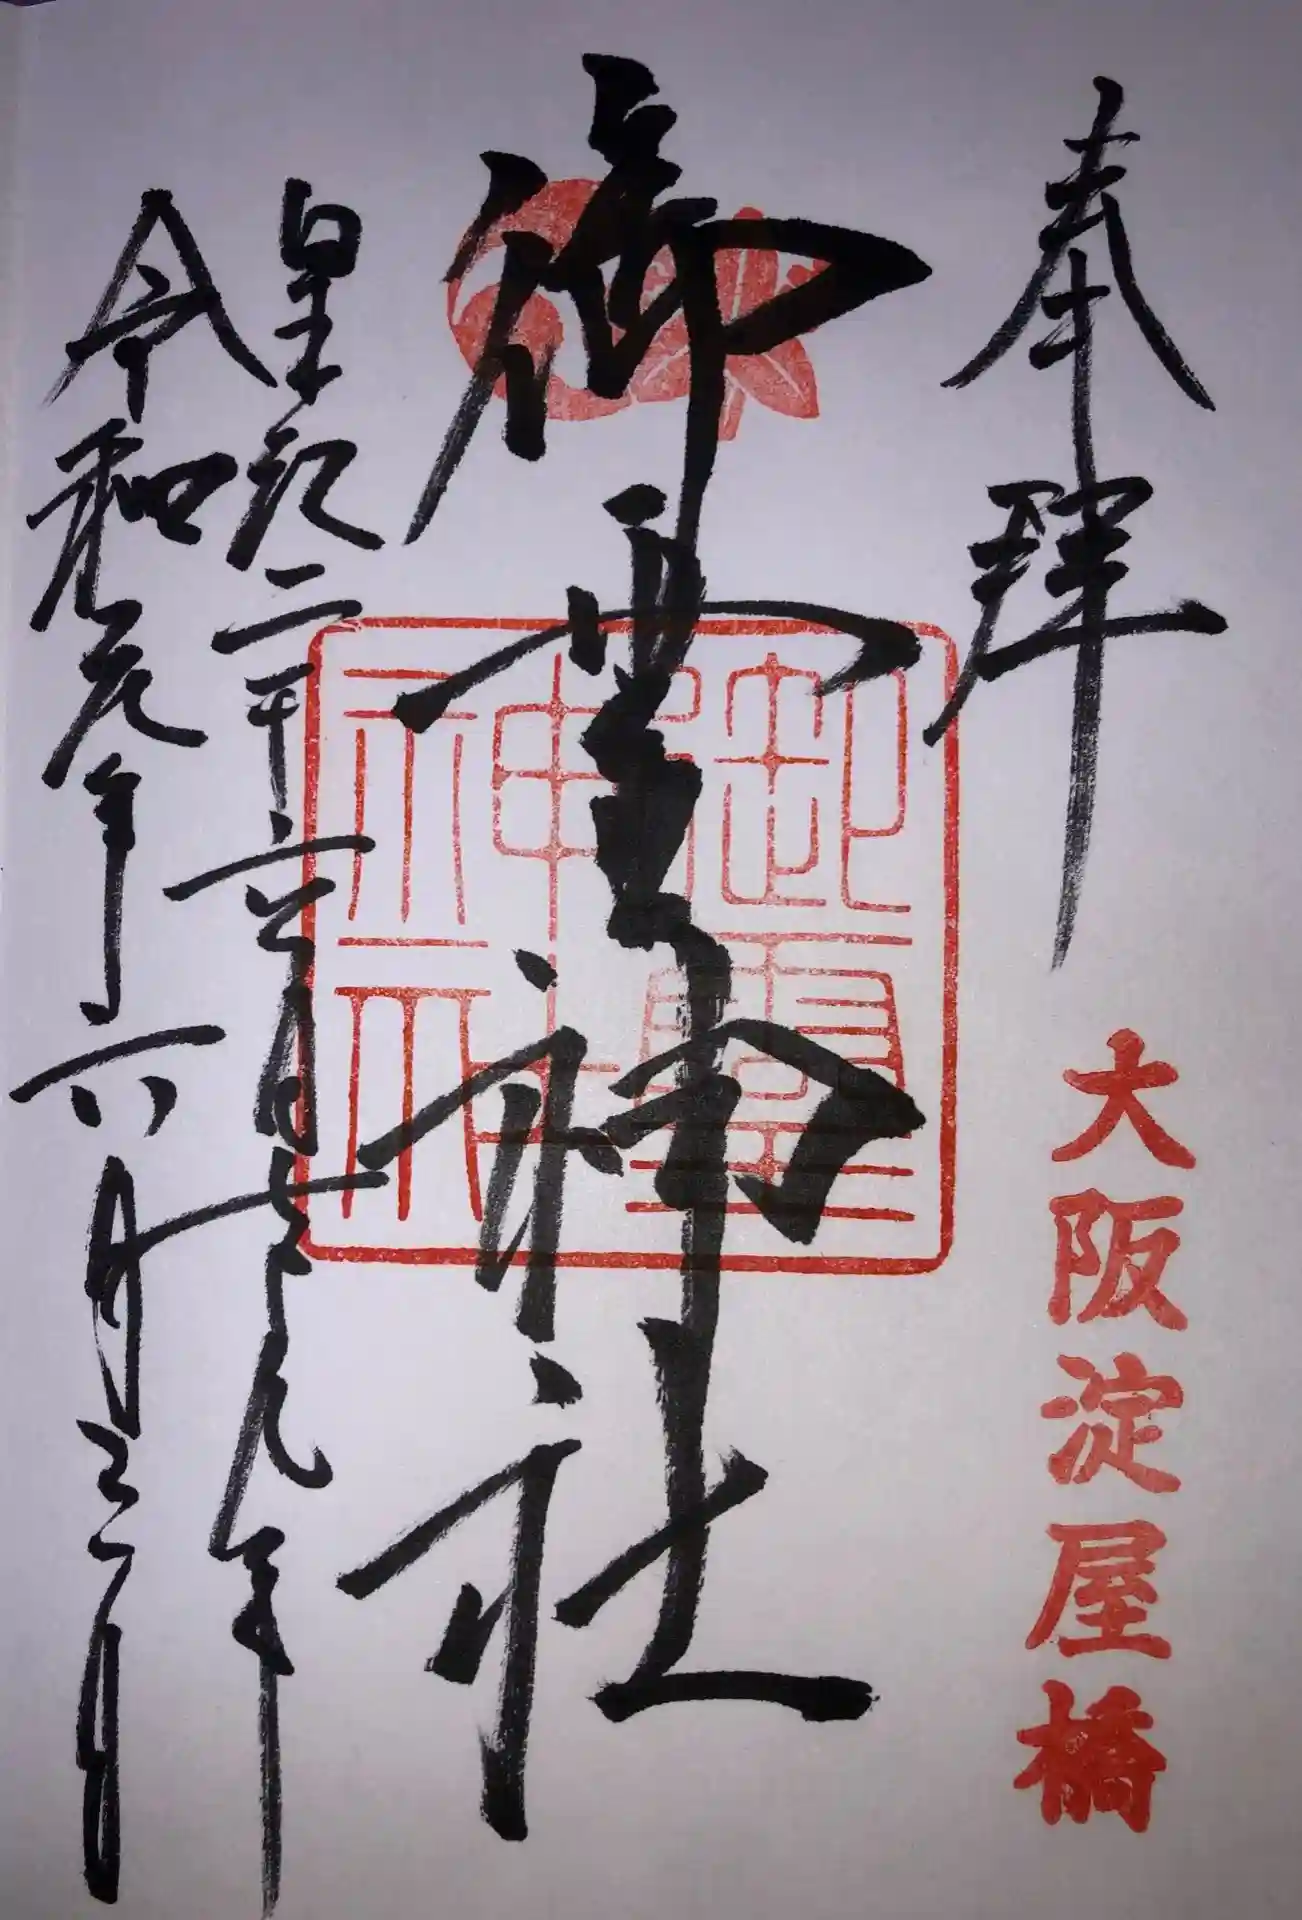 奉拝
大阪淀屋橋
御霊神社
御霊
神社
皇紀二千六百七十九年
令和元年六月日